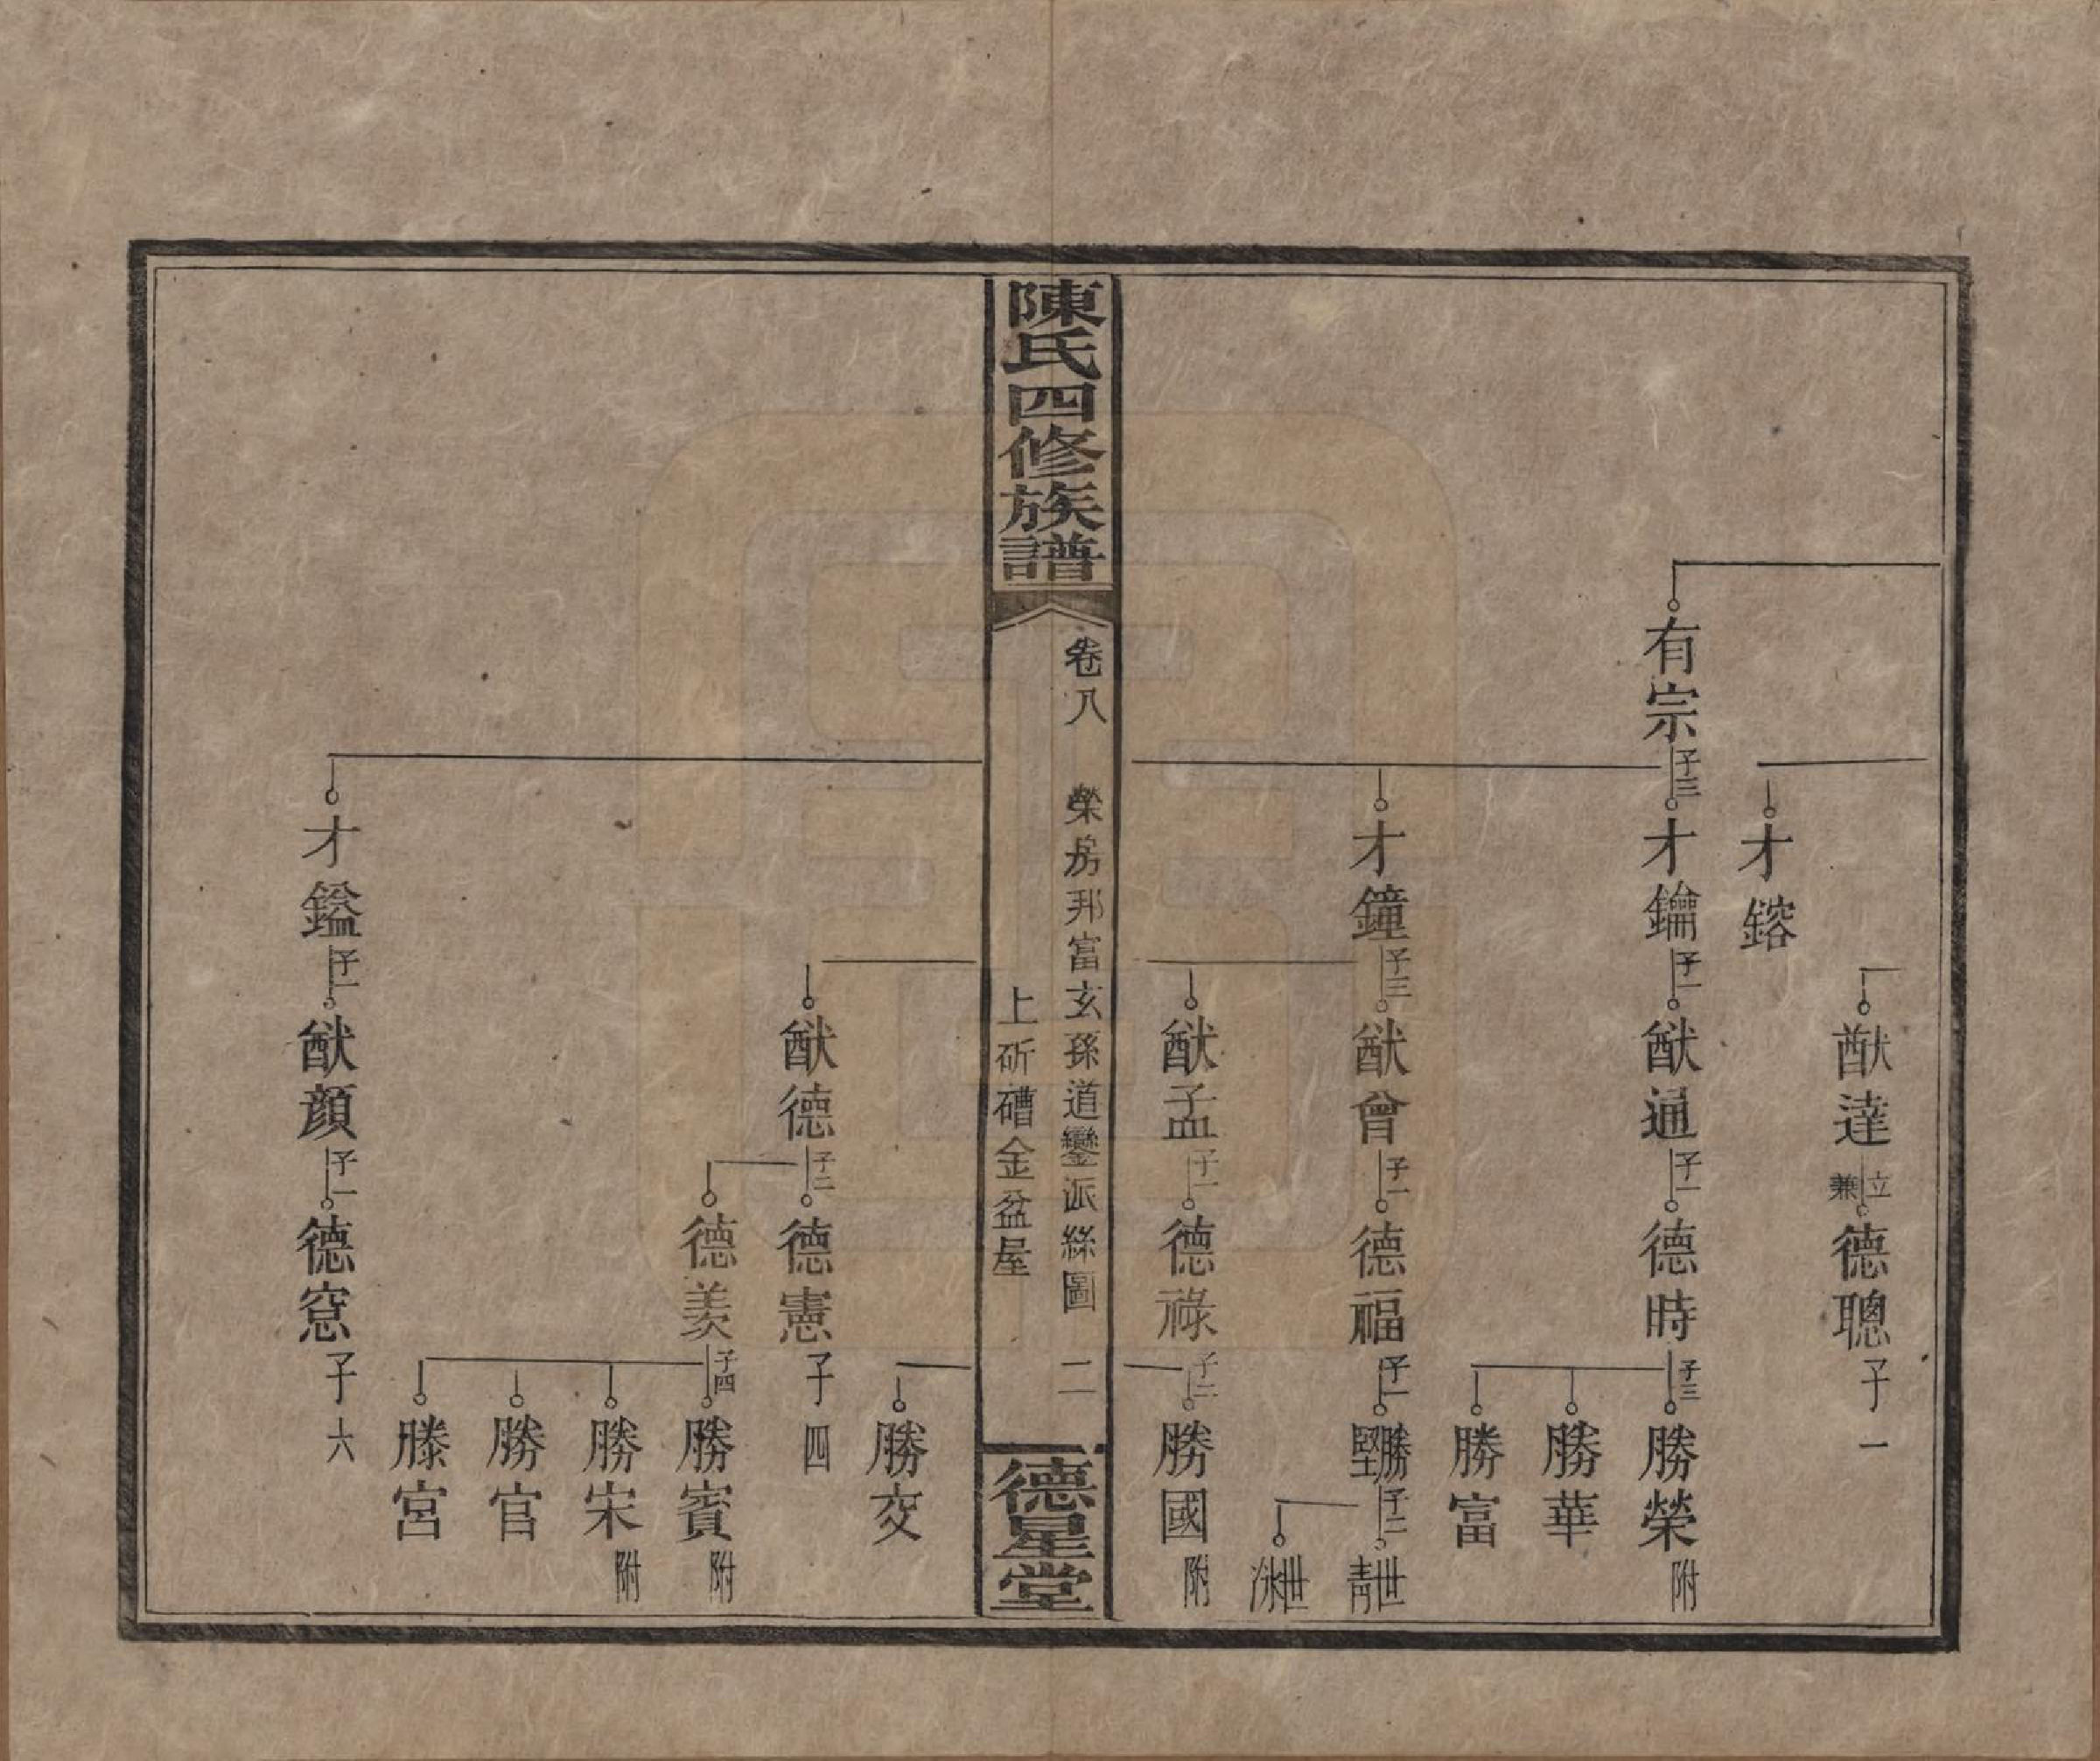 猷達 兼立 德聰 子一
才鎔
有宗 子三 才鑰 子一 猷通 子一 德時 子三 勝榮 附
勝華
勝富
才鐘 子三 猷曾 子一 德福 子一 勝堅 子二 世青
世泳
猷孟 子一 德祿 子二 勝國 附
陳氏四修族譜
卷八 榮房邦富玄孫道鑾派絲圖 二
上斫磆金盆屋
德星堂
勝交
猷德 子二 德憲 子四
德羨 子四 勝賓 附
勝宋 附
勝官
勝宮
才鎰 子一 猷顏 子一 德窓 子六